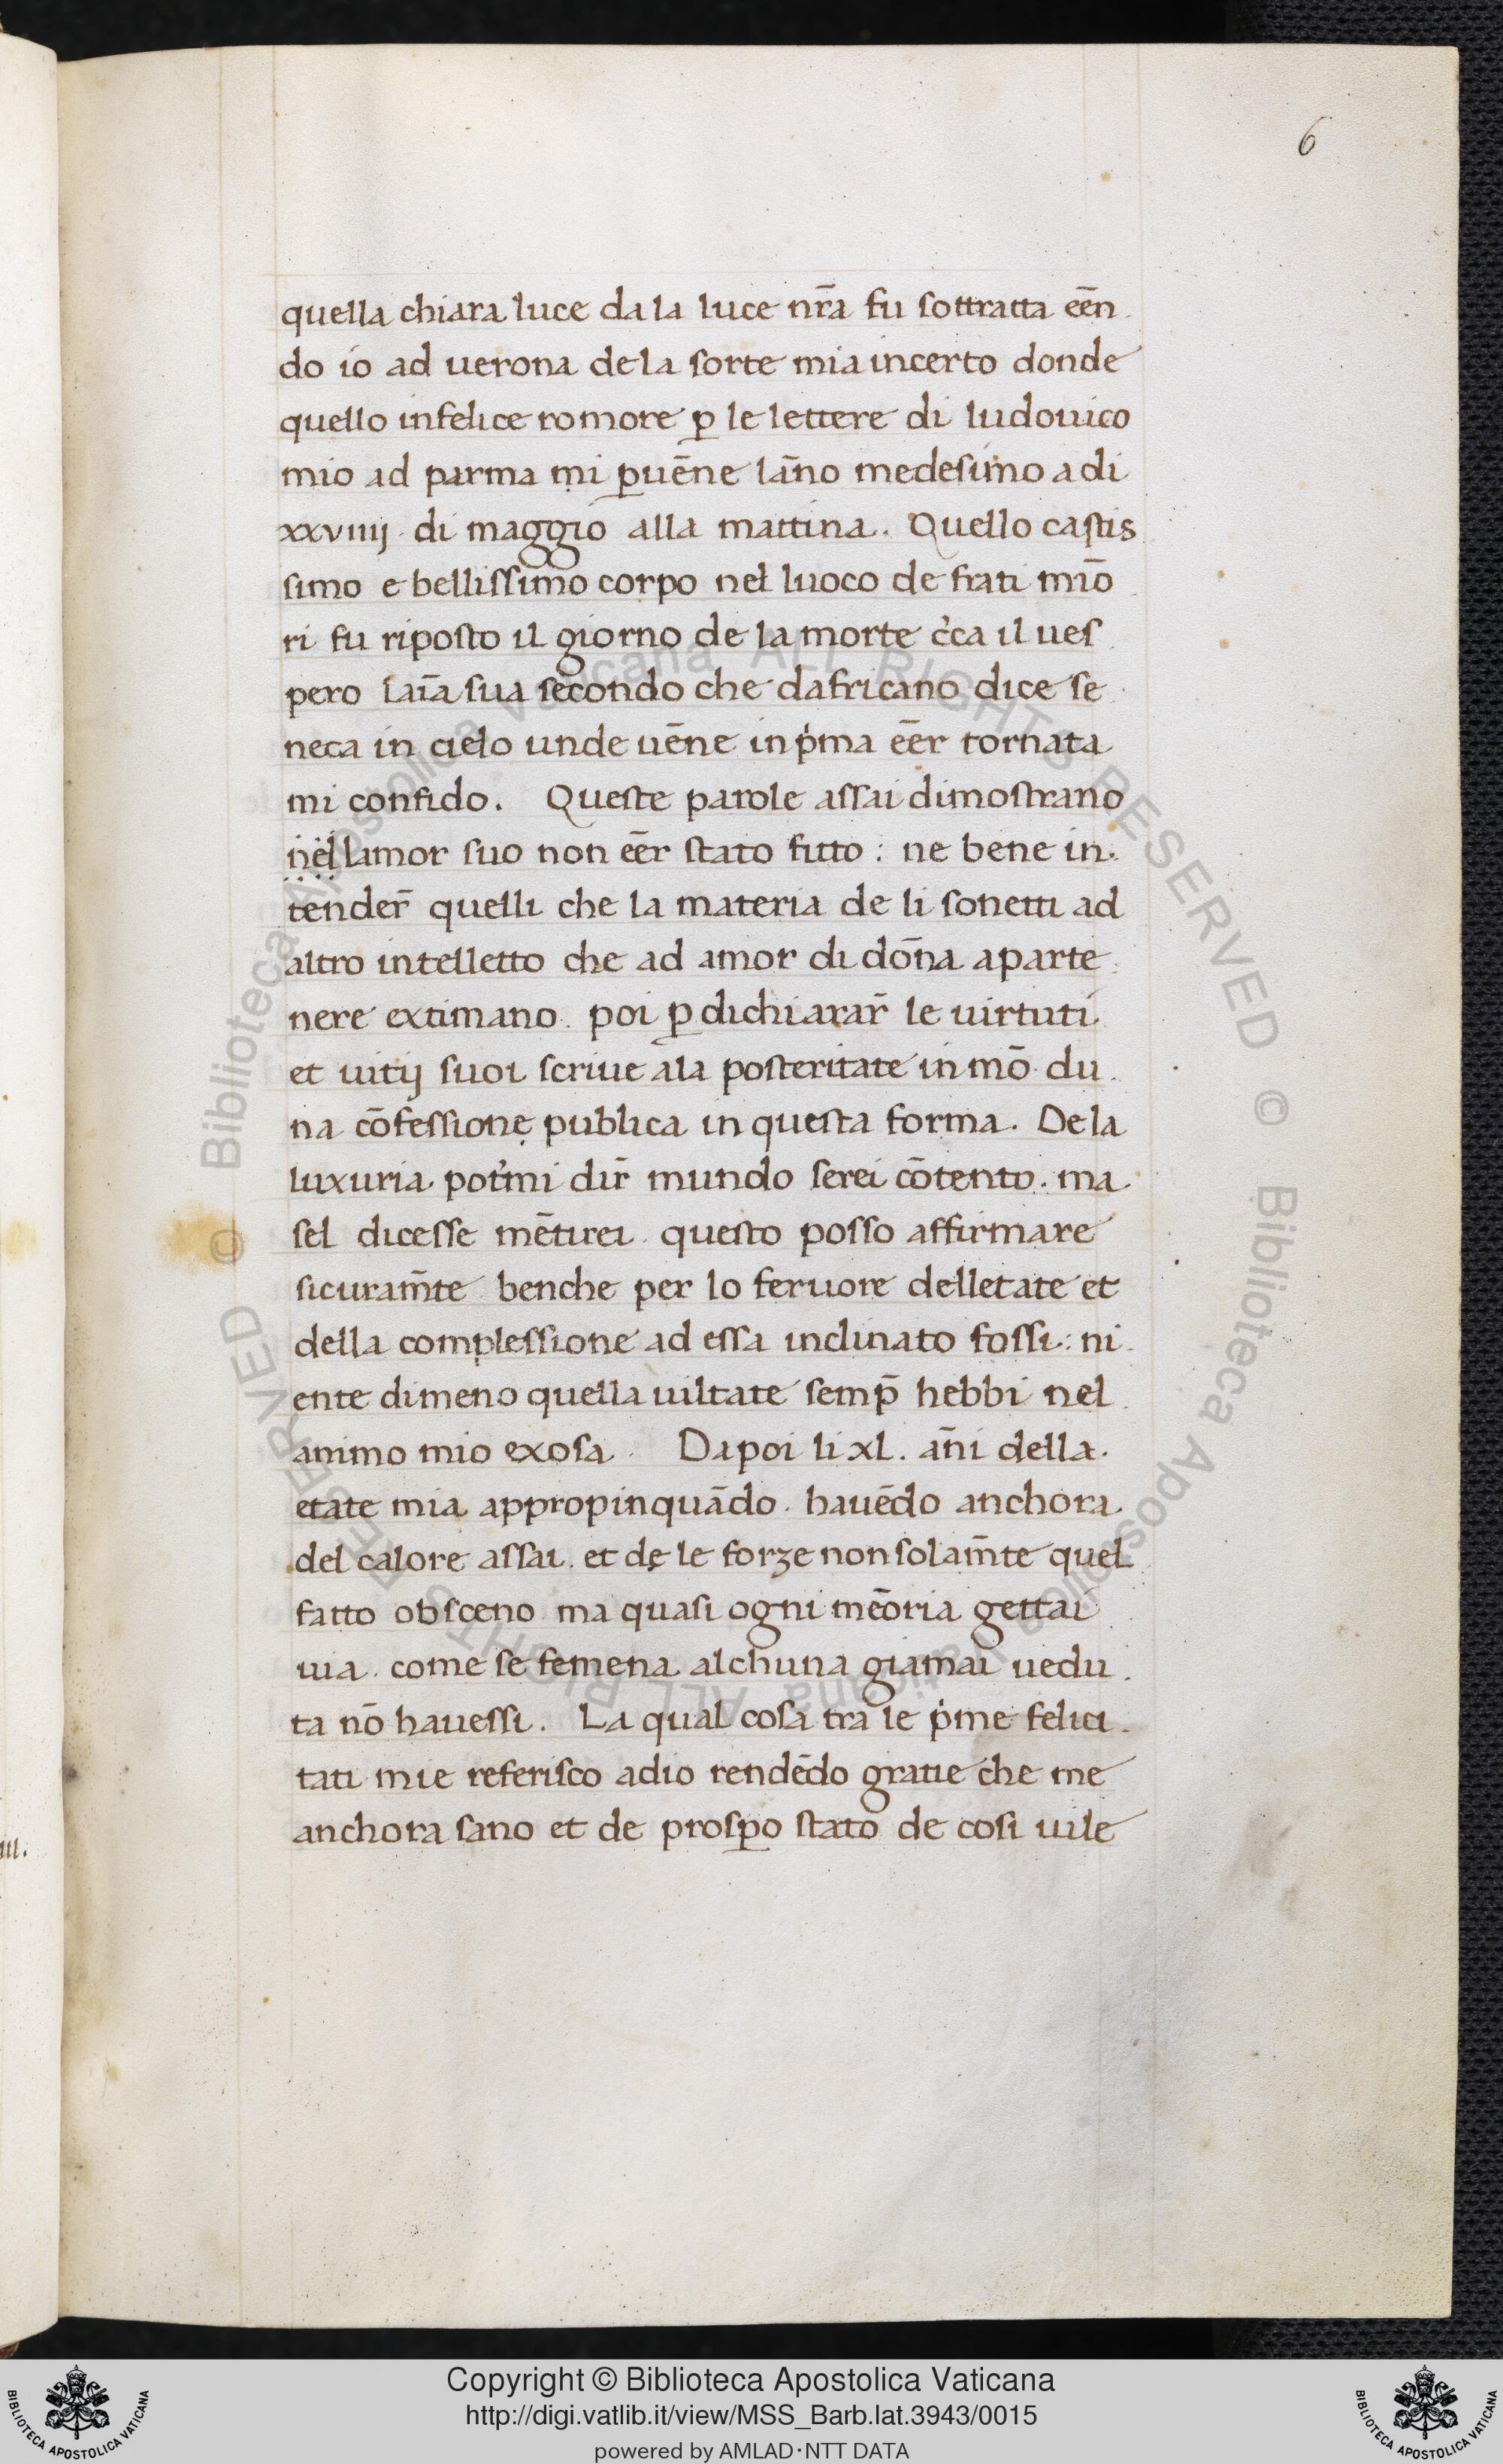 6
quella chiara luce da la luce nr̄a fu sottratta eēn
do io ad uerona de la sorte mia incerto donde
quello infelice romore ꝑ le lettere di ludouico
mio ad parma mi ꝑuēne lāno medesimo a di
xxviiij di maggio alla mattina. Quello castis
simo e bellissimo corpo nel luoco de frati miō
ri fu riposto il giorno de la morte c̓ca il ues
pero laīa sua secondo che dafricano dice se
neca in cielo unde uēne in pͥma eēr tornata
mi confido. Queste parole assai dimostrano
nel lamor suo non eēr stato fitto : ne bene in
tender̄ quelli che la materia de li sonetti ad
altro intelletto che ad amor di dōna aparte
nere extimano. poi ꝑ dichiarar̄ le uirtuti
et uitij suoi scriue ala posteritate in mō du
na cōfessione publica in questa forma. De la
luxuria pot̓mi dir̄ mundo serei cōtento. ma
sel dicesse mētirei. questo posso affirmare
sicuram̄te benche per lo feruore delletate et
della complessione ad essa inclinato fossi: ni
ente dimeno quella uiltate semp̄ hebbi nel
animo mio exosa. Dapoi li xl. ān̄i della
etate mia appropinquādo. hauēdo anchora
del calore assai. et de le forze non solam̄te quel
fatto obsceno ma quasi ogni mēoria gettai
uia. come se femena alchuna giamai uedu
ta nō hauessi. La qual cosa tra le pͥme felici
tati mie referisco adio rendēdo gratie che me
anchora sano et de prosꝑo stato de cosi uile
iii.
© Biblioteca Apostolica Vaticana ALL RIGHTS RESERVED © Biblioteca Apostolica Vaticana ALL RIGHTS RESERVED
BIBLIOTECA APOSTOLICA VATICANA
Copyright © Biblioteca Apostolica Vaticana
http://digi.vatlib.it/view/MSS_Barb.lat.3943/0015
powered by AMLAD·NTT DATA
BIBLIOTECA APOSTOLICA VATICANA